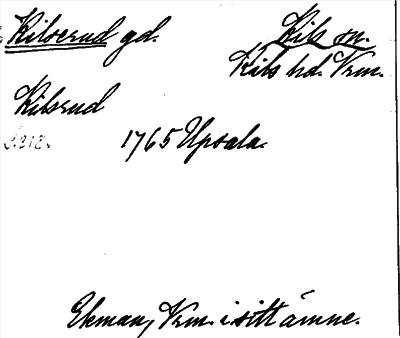 Kilserud gd. Kils sn.
Kils hd. Vrm.
Kilsrud
S. 212.
1765 Upsala.
Ekman, Vrm. i sitt ämne.